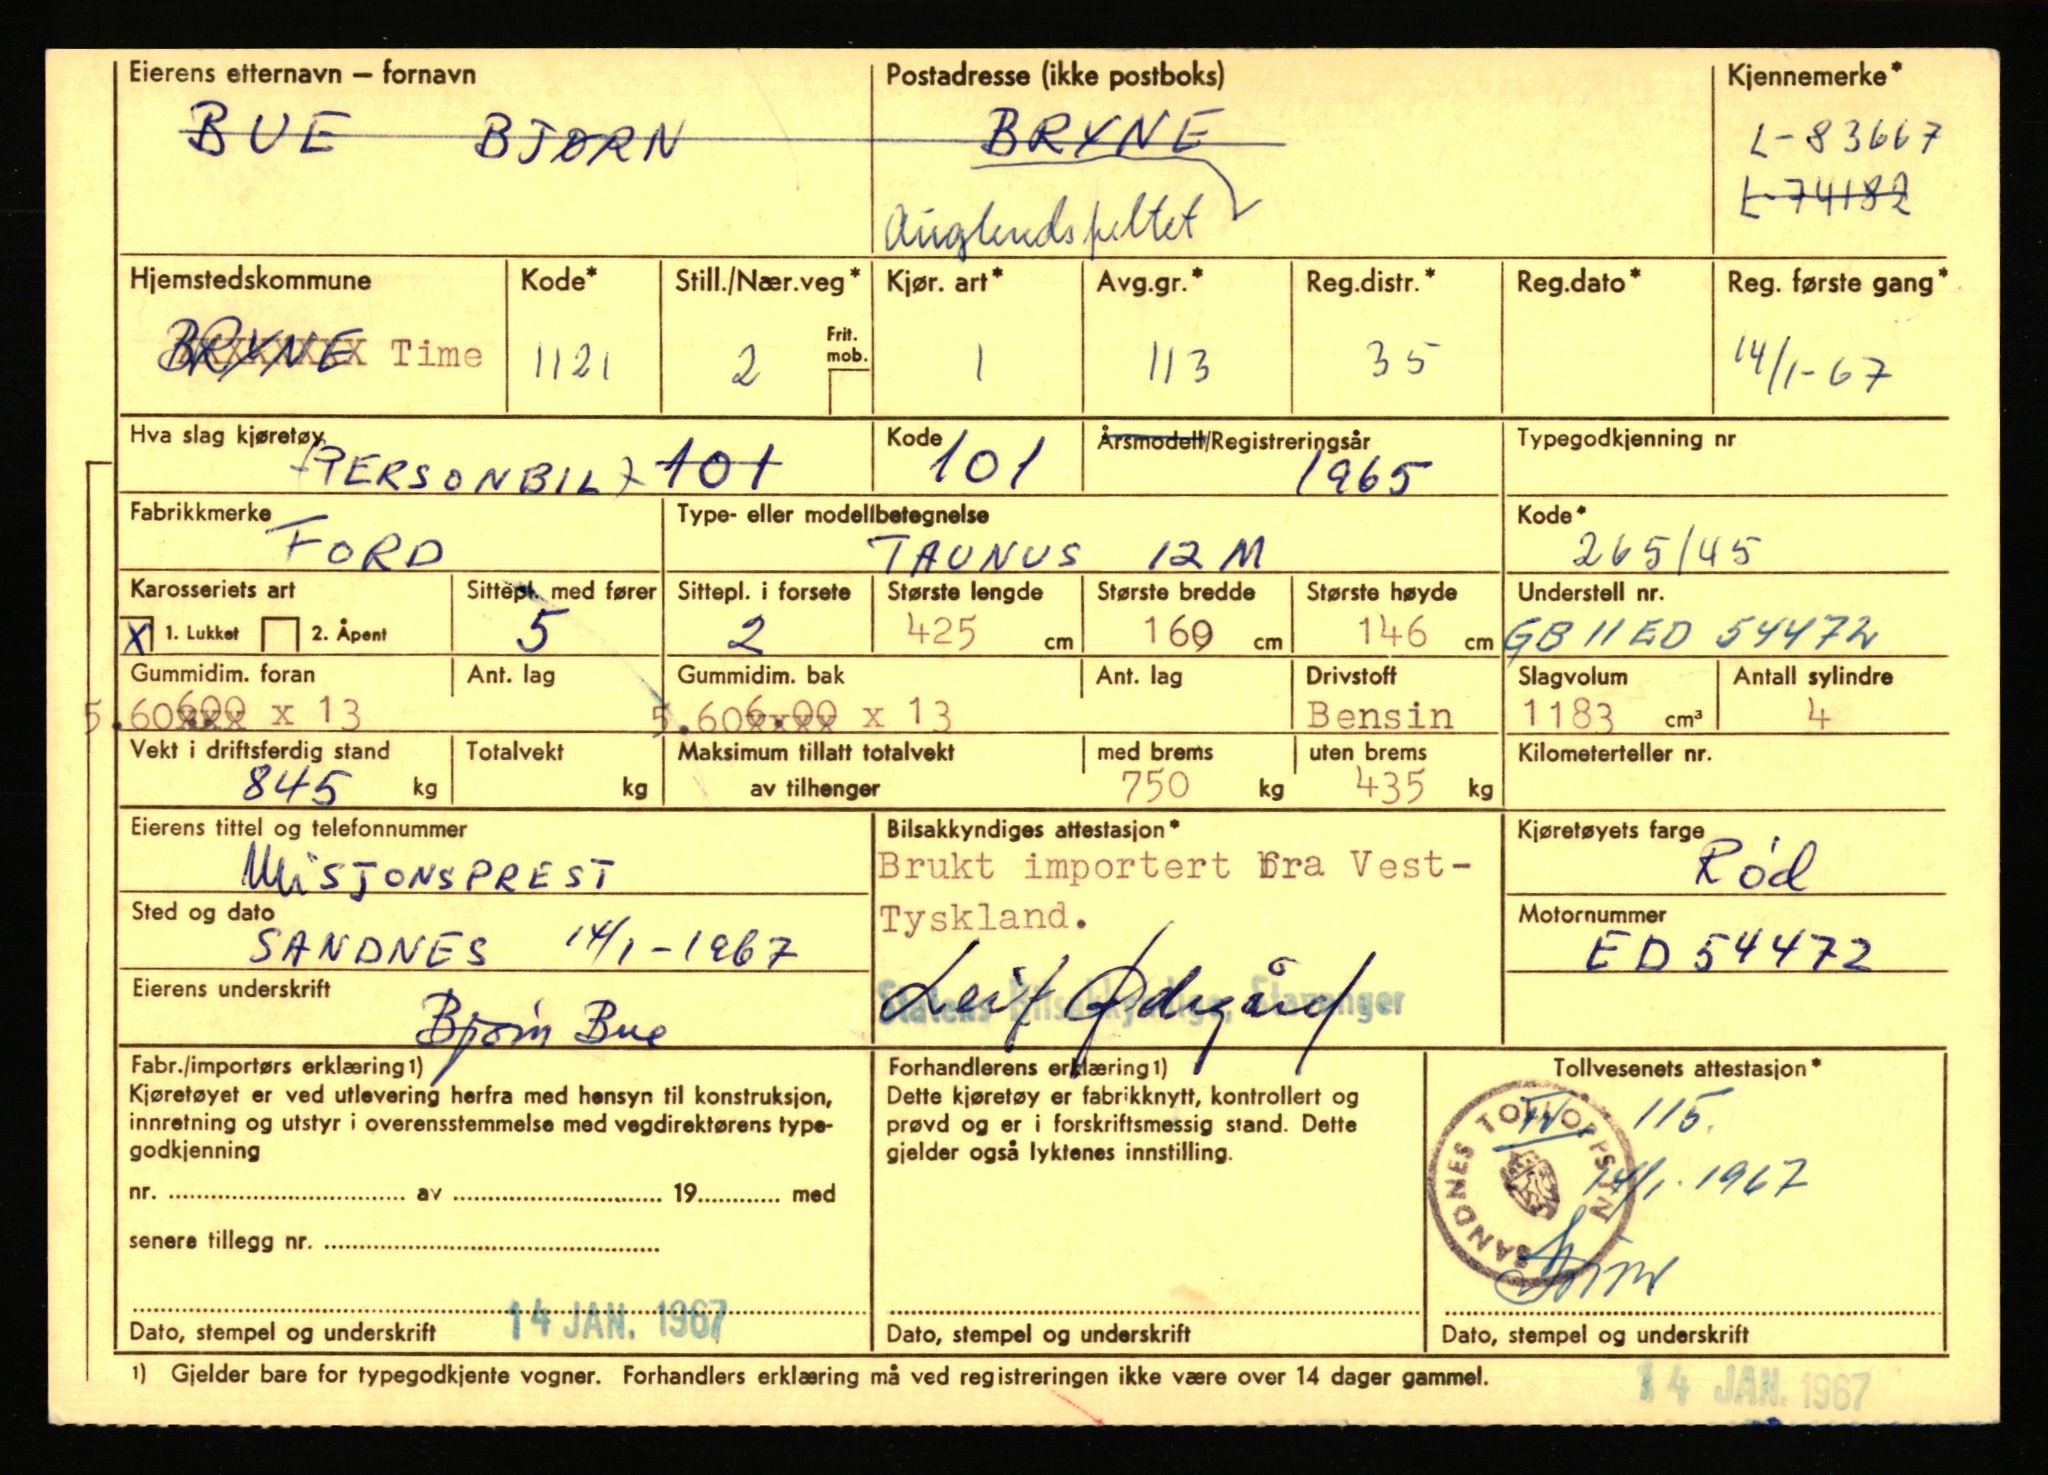 Eierens etternavn – fornavn
Postadresse (ikke postboks)
Kjennemerke*
BUE BJØRN
BRYNE
L-83667
L-74182
Hjemstedskommune
Kode*
Still./Nær.veg*
Kjør. art*
Avg.gr.*
Reg.distr.*
Reg.dato*
Reg. første gang*
BRYNE Time
1121
2
Frit. mob.
1
113
35
14/1-67
Hva slag kjøretøy
(PERSONBIL) 101
Kode
101
Årsmodell/Registreringsår
1965
Typegodkjenning nr
Fabrikkmerke
FORD
Type- eller modellbetegnelse
TAUNUS 12 M
Kode*
265/45
Karosseriets art
X 1. Lukket 2. Åpent
Sittepl. med fører
5
Sittepl. i forsete
2
Største lengde
425 cm
Største bredde
169 cm
Største høyde
146 cm
Understell nr.
GB 11 ED 54472
Gummidim. foran
5.60 6.00 x 13
Ant. lag
Gummidim. bak
5.60 6.00 x 13
Ant. lag
Drivstoff
Bensin
Slagvolum
1183 cm³
Antall sylindre
4
Vekt i driftsferdig stand
845 kg
Totalvekt
kg
Maksimum tillatt totalvekt
av tilhenger
med brems
750 kg
uten brems
435 kg
Kilometerteller nr.
Eierens tittel og telefonnummer
MISJONSPREST
Bilsakkyndiges attestasjon*
Brukt importert fra Vest-
Tyskland.
Kjøretøyets farge
Rød
Sted og dato
SANDNES 14/1-1967
Motornummer
ED 54472
Eierens underskrift
Bjørn Bue
Statens Bilsakkyndige, Stavanger
Leif Ødegård
Fabr./importørs erklæring 1)
Kjøretøyet er ved utlevering herfra med hensyn til konstruksjon,
innretning og utstyr i overensstemmelse med vegdirektørens type-
godkjenning
nr. .......... av .......... 19.......... med
senere tillegg nr. ..........
14 JAN. 1967
Dato, stempel og underskrift
Forhandlerens erklæring 1)
Dette kjøretøy er fabrikknytt, kontrollert og
prøvd og er i forskriftsmessig stand. Dette
gjelder også lyktenes innstilling.
Dato, stempel og underskrift
Tollvesenets attestasjon*
115.
14/1. 1967
SANDNES TOLLOPPSYN
Dato, stempel og underskrift
1) Gjelder bare for typegodkjente vogner. Forhandlers erklæring må ved registreringen ikke være over 14 dager gammel.
14 JAN. 1967